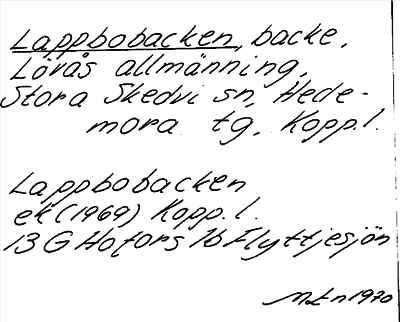 Lappbobacken, backe,
Lövås allmänning,
Stora Skedvi sn, Hede-
mora tg, Kopp.l.
Lappbobacken
ek (1969) Kopp.l.
13 G Hofors 1b Flyttjesjön
MLn 1970